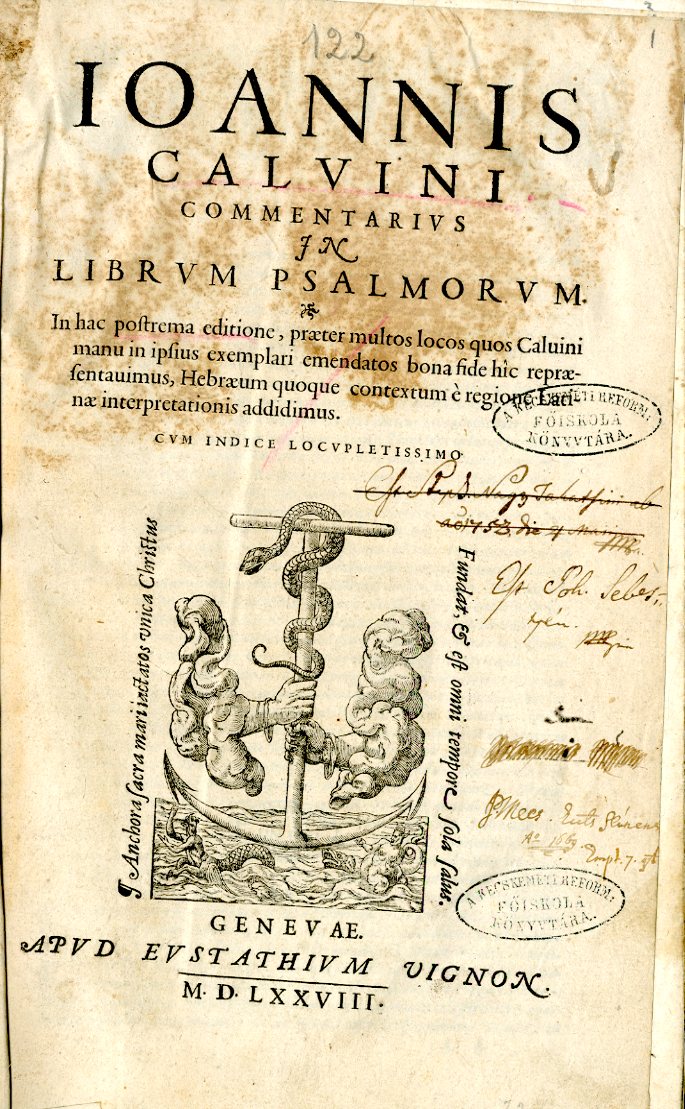 122
IOANNIS
CALVINI
COMMENTARIVS
IN
LIBRVM PSALMORVM.
In hac postrema editione, præter multos locos quos Caluini
manu in ipsius exemplari emendatos bona fide hîc repræ-
sentauimus, Hebræum quoque contextum è regione Lati-
næ interpretationis addidimus.
CVM INDICE LOCVPLETISSIMO.
A KECSKEMÉTI REFORM:
FŐISKOLA
KÖNYVTÁRA.
Est Joh. Sebes-
¶ Anchora sacra mari iactatos vnica Christus
Fundat & est omni tempore sola salus.
Ao 1669
A KECSKEMÉTI REFORM:
FŐISKOLA
KÖNYVTÁRA.
GENEVAE.
APVD EVSTATHIVM VIGNON.
M. D. LXXVIII.